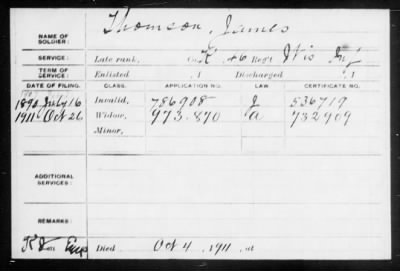 NAME OF SOLDIER: Thomson, James
SERVICE: Late rank, Co. K, 46 Reg't Wis Inf
TERM OF SERVICE: Enlisted , 1 Discharged , 1
DATE OF FILING. CLASS. APPLICATION NO. LAW CERTIFICATE NO.
1890 July 16 Invalid, 786908 J 536719
1911 Oct 26 Widow, 973.870 a 732909
Minor,
ADDITIONAL SERVICES:
REMARKS:
Died Oct 4, 1911, at